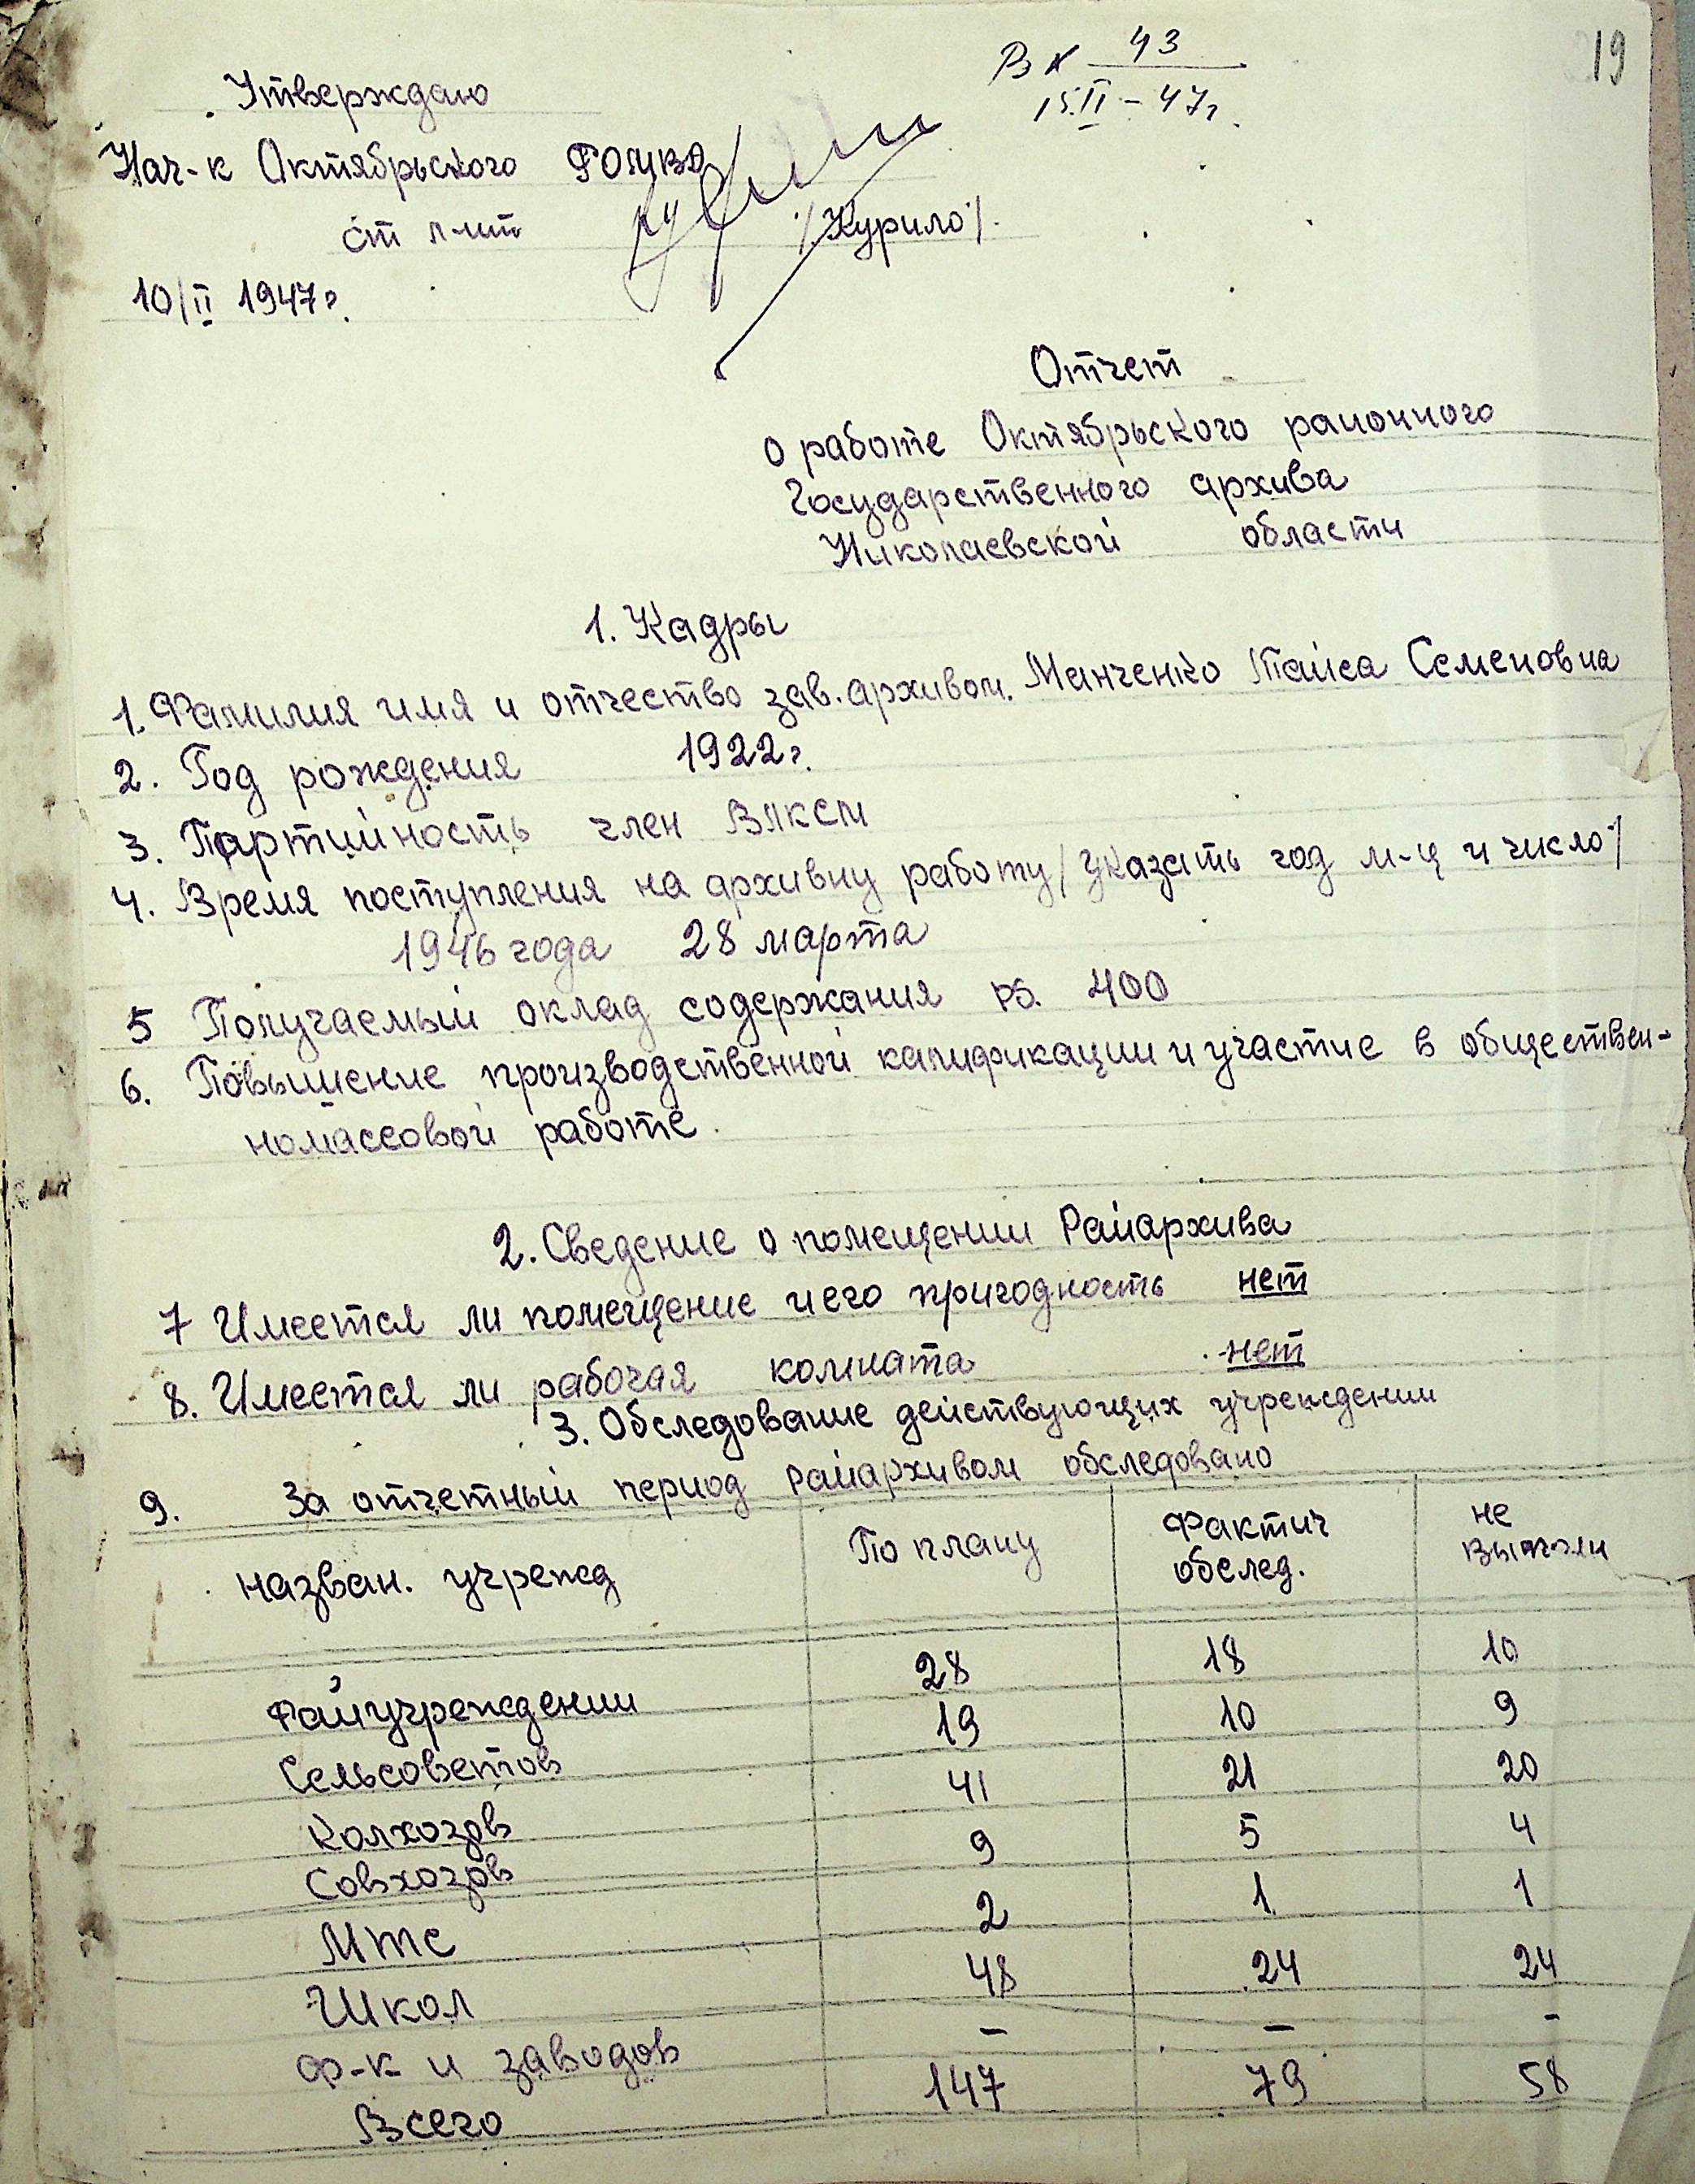 19
Вх 43
15.II-47г.
Утверждаю
Нач-к Октябрьского РОМВД
ст л-нт /Курило/.
10/II 1947г.
Отчет
о работе Октябрьского районного
Государственного архива
Николаевской области
1. Кадры
1. Фамилия имя и отчество зав. архивом. Манченко Таиса Семеновна
2. Год рождения 1922г.
3. Партийность член ВЛКСМ
4. Время поступления на архивну работу /указать год м-ц и число/
1946 года 28 марта
5 Получаемый оклад содержания рб. 400
6. Повышение производственной калификации и участие в обществен-
номассовой работе.
2. Сведение о помещении Райархива
7 Имеется ли помещение и его пригодность нет
8. Имеется ли рабочая комната нет
3. Обследование действующих учреждении
9. За отчетный период райархивом обследовано
назван. учрежд По плану Фактич обслед. не
Райучреждении 28 18 10
Сельсоветов 19 10 9
Колхозов 41 21 20
Совхозов 9 5 4
МТС 2 1 1
Школ 48 24 24
Ф-к и заводов – – -
Всего 147 79 58